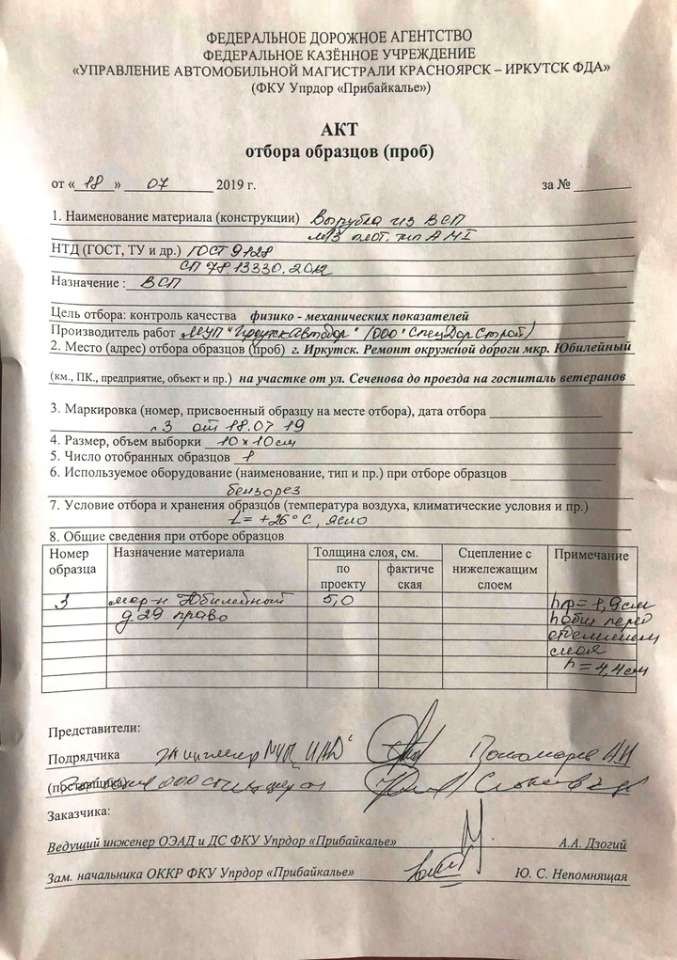 ФЕДЕРАЛЬНОЕ ДОРОЖНОЕ АГЕНТСТВО
ФЕДЕРАЛЬНОЕ КАЗЁННОЕ УЧРЕЖДЕНИЕ
«УПРАВЛЕНИЕ АВТОМОБИЛЬНОЙ МАГИСТРАЛИ КРАСНОЯРСК – ИРКУТСК ФДА»
(ФКУ Упрдор «Прибайкалье»)
АКТ
отбора образцов (проб)
от « 18 » 07 2019 г. за №
1. Наименование материала (конструкции) Вырубка из ВСП
м/з плот. тип А МI
НТД (ГОСТ, ТУ и др.) ГОСТ 9128
СП 78.13330.2012
Назначение : ВСП
Цель отбора: контроль качества физико - механических показателей
Производитель работ МУП "Иркутскавтодор" (ООО "СпецДорСтрой)
2. Место (адрес) отбора образцов (проб) г. Иркутск. Ремонт окружной дороги мкр. Юбилейный
(км., ПК., предприятие, объект и пр.) на участке от ул. Сеченова до проезда на госпиталь ветеранов
3. Маркировка (номер, присвоенный образцу на месте отбора), дата отбора
3 от 18.07.19
4. Размер, объем выборки 10 х 10 см
5. Число отобранных образцов 1
6. Используемое оборудование (наименование, тип и пр.) при отборе образцов
бензорез
7. Условие отбора и хранения образцов (температура воздуха, климатические условия и пр.)
t = +26° С, ясно
8. Общие сведения при отборе образцов
Номер образца Назначение материала Толщина слоя, см. Сцепление с нижележащим слоем Примечание
по проекту фактиче ская
3 мкр-н Юбилейный 5,0 hф = 1,9 см
д 29 право hобщ перед
отделением
слоя
h = 4,4 см
Представители:
Подрядчика инженер МУП ИАД" Пономарев А.И
(поставщика) ООО
Заказчика:
Ведущий инженер ОЭАД и ДС ФКУ Упрдор «Прибайкалье» А.А. Дзогий
Зам. начальника ОККР ФКУ Упрдор «Прибайкалье» Ю. С. Непомнящая